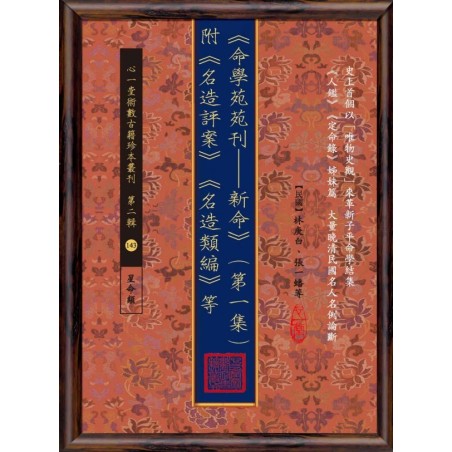 史上首個以「唯物史觀」來革新子平命學結集
《人鑑》《定命錄》姊妹篇 大量晚清民國名人名例論斷
【民國】林庚白、張一蟠等
《命學苑苑刊——新命》（第一集）
附《名造評案》《名造類編》等
心一堂術數古籍珍本叢刊 第二輯 143 星命類